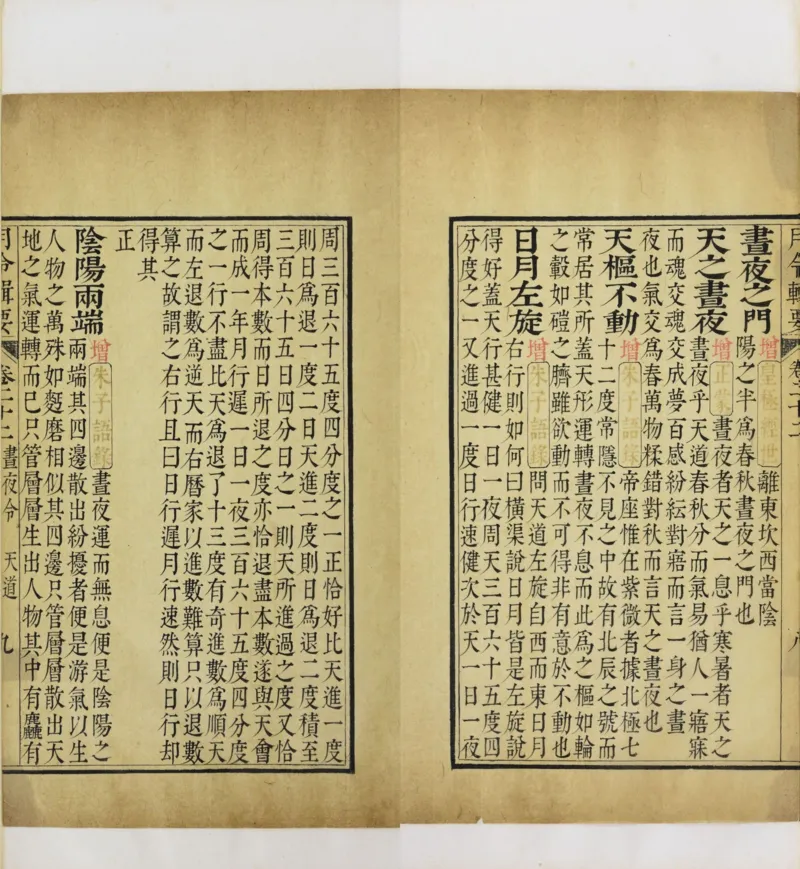 月令輯要 卷二十二 八
晝夜之門 增 皇極經世 離東坎西當陰
陽之半爲春秋晝夜之門也
天之晝夜 增 正蒙 晝夜者天之一息乎寒暑者天之
晝夜乎天道春秋分而氣易猶人一寤寐
而魂交魂交成夢百感紛紜對寤而言一身之晝
夜也氣交爲春萬物糅錯對秋而言天之晝夜也
天樞不動 增 朱子語錄 帝座惟在紫微者據北極七
十二度常隱不見之中故有北辰之號而
常居其所蓋天形運轉晝夜不息而此爲之樞如輪
之轂如磑之臍雖欲動而不可得非有意於不動也
日月左旋 增 朱子語錄 問天道左旋自西而東日月
右行則如何曰橫渠說日月皆是左旋說
得好蓋天行甚健一日一夜周天三百六十五度四
分度之一又進過一度日行速健次於天一日一夜
周三百六十五度四分度之一正恰好比天進一度
則日爲退一度二日天進二度則日爲退二度積至
三百六十五日四分日之一則天所進過之度又恰
周得本數而日所退之度亦恰退盡本數遂與天會
而成一年月行遲一日一夜三百六十五度四分度
之一行不盡比天爲退了十三度有奇進數爲順天
而左退數爲逆天而右曆家以進數難算只以退數
算之故謂之右行且曰日行遲月行速然則日行却
得其
正
陰陽兩端 增 朱子語錄 晝夜運而無息便是陰陽之
兩端其四邊散出紛擾者便是游氣以生
人物之萬殊如麪磨相似其四邊只管層層散出天
地之氣運轉而已只管層層生出人物其中有麤有
月令輯要 卷二十二 晝夜令 天道 九